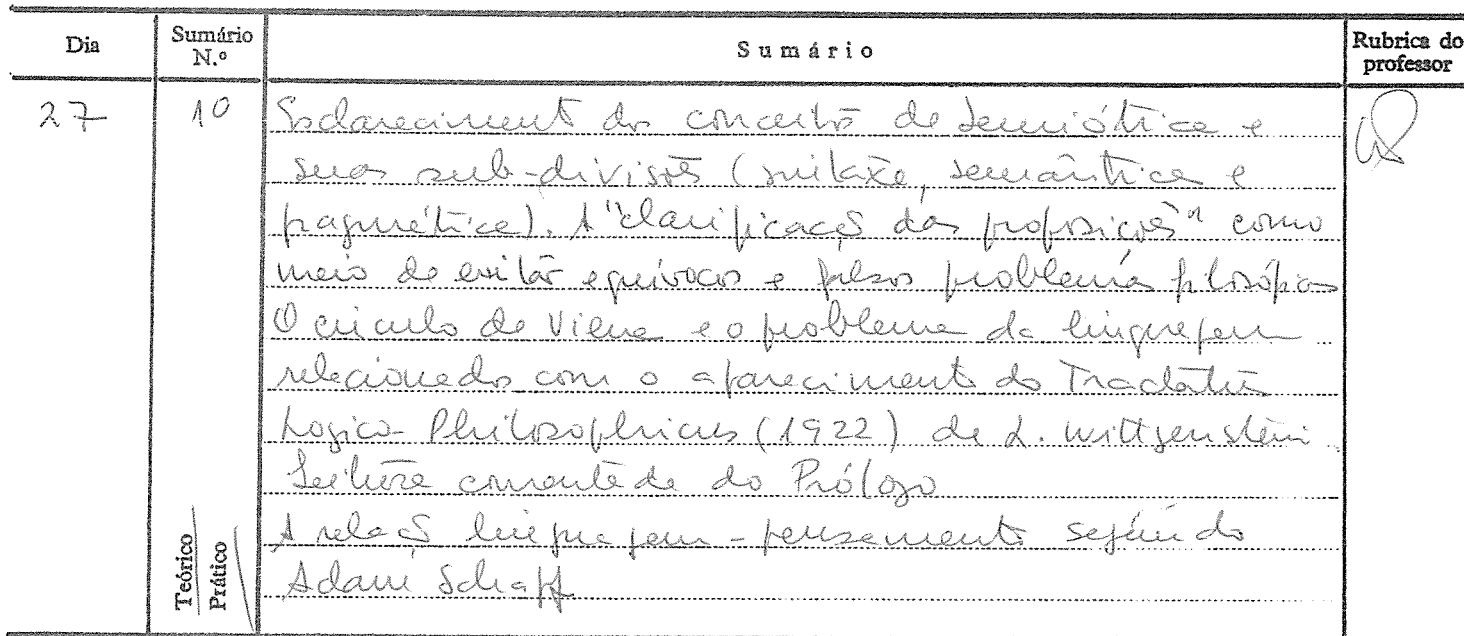 Dia
Sumário N.º
Sumário
Rubrica do professor
27
1º
Esclarecimento do conceito de Semiótica e
suas sub-divisões (sintaxe, semântica e
pragmática). A "clarificação das proposições" como
meio de evitar equívocos e falsos problemas filosóficos
O circulo de Viena e o problema da linguagem
relacionados com o aparecimento do Tractatus
Logico-Philosophicus (1922) de L. Wittgenstein
Leitura comentada do Prólogo
A relação linguagem - pensamento segundo
Adam Schaff
Teórico
Prático